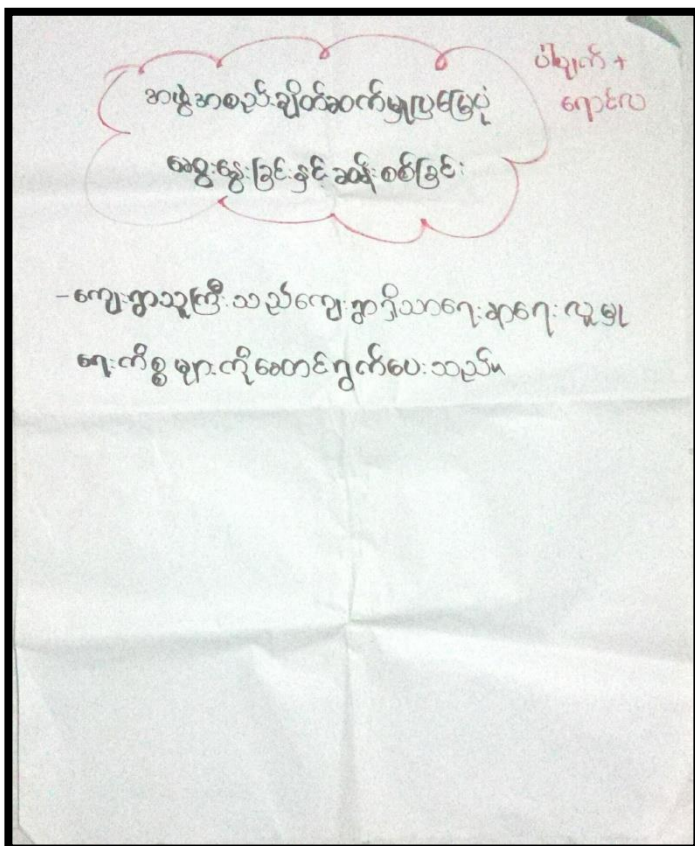 ပေါ်မျက် +
ရောင်လ
အဖွဲ့အစည်းချိတ်ဆက်မှုပြမြေပုံ
ဆွေးနွေးခြင်းနှင့်ဆန်းစစ်ခြင်း
-ကျေးရွာသူကြီးသည်ကျေးရွာရှိသာရေးနာရေးလူမှု
ရေးကိစ္စများကိုဆောင်ရွက်ပေးသည်။